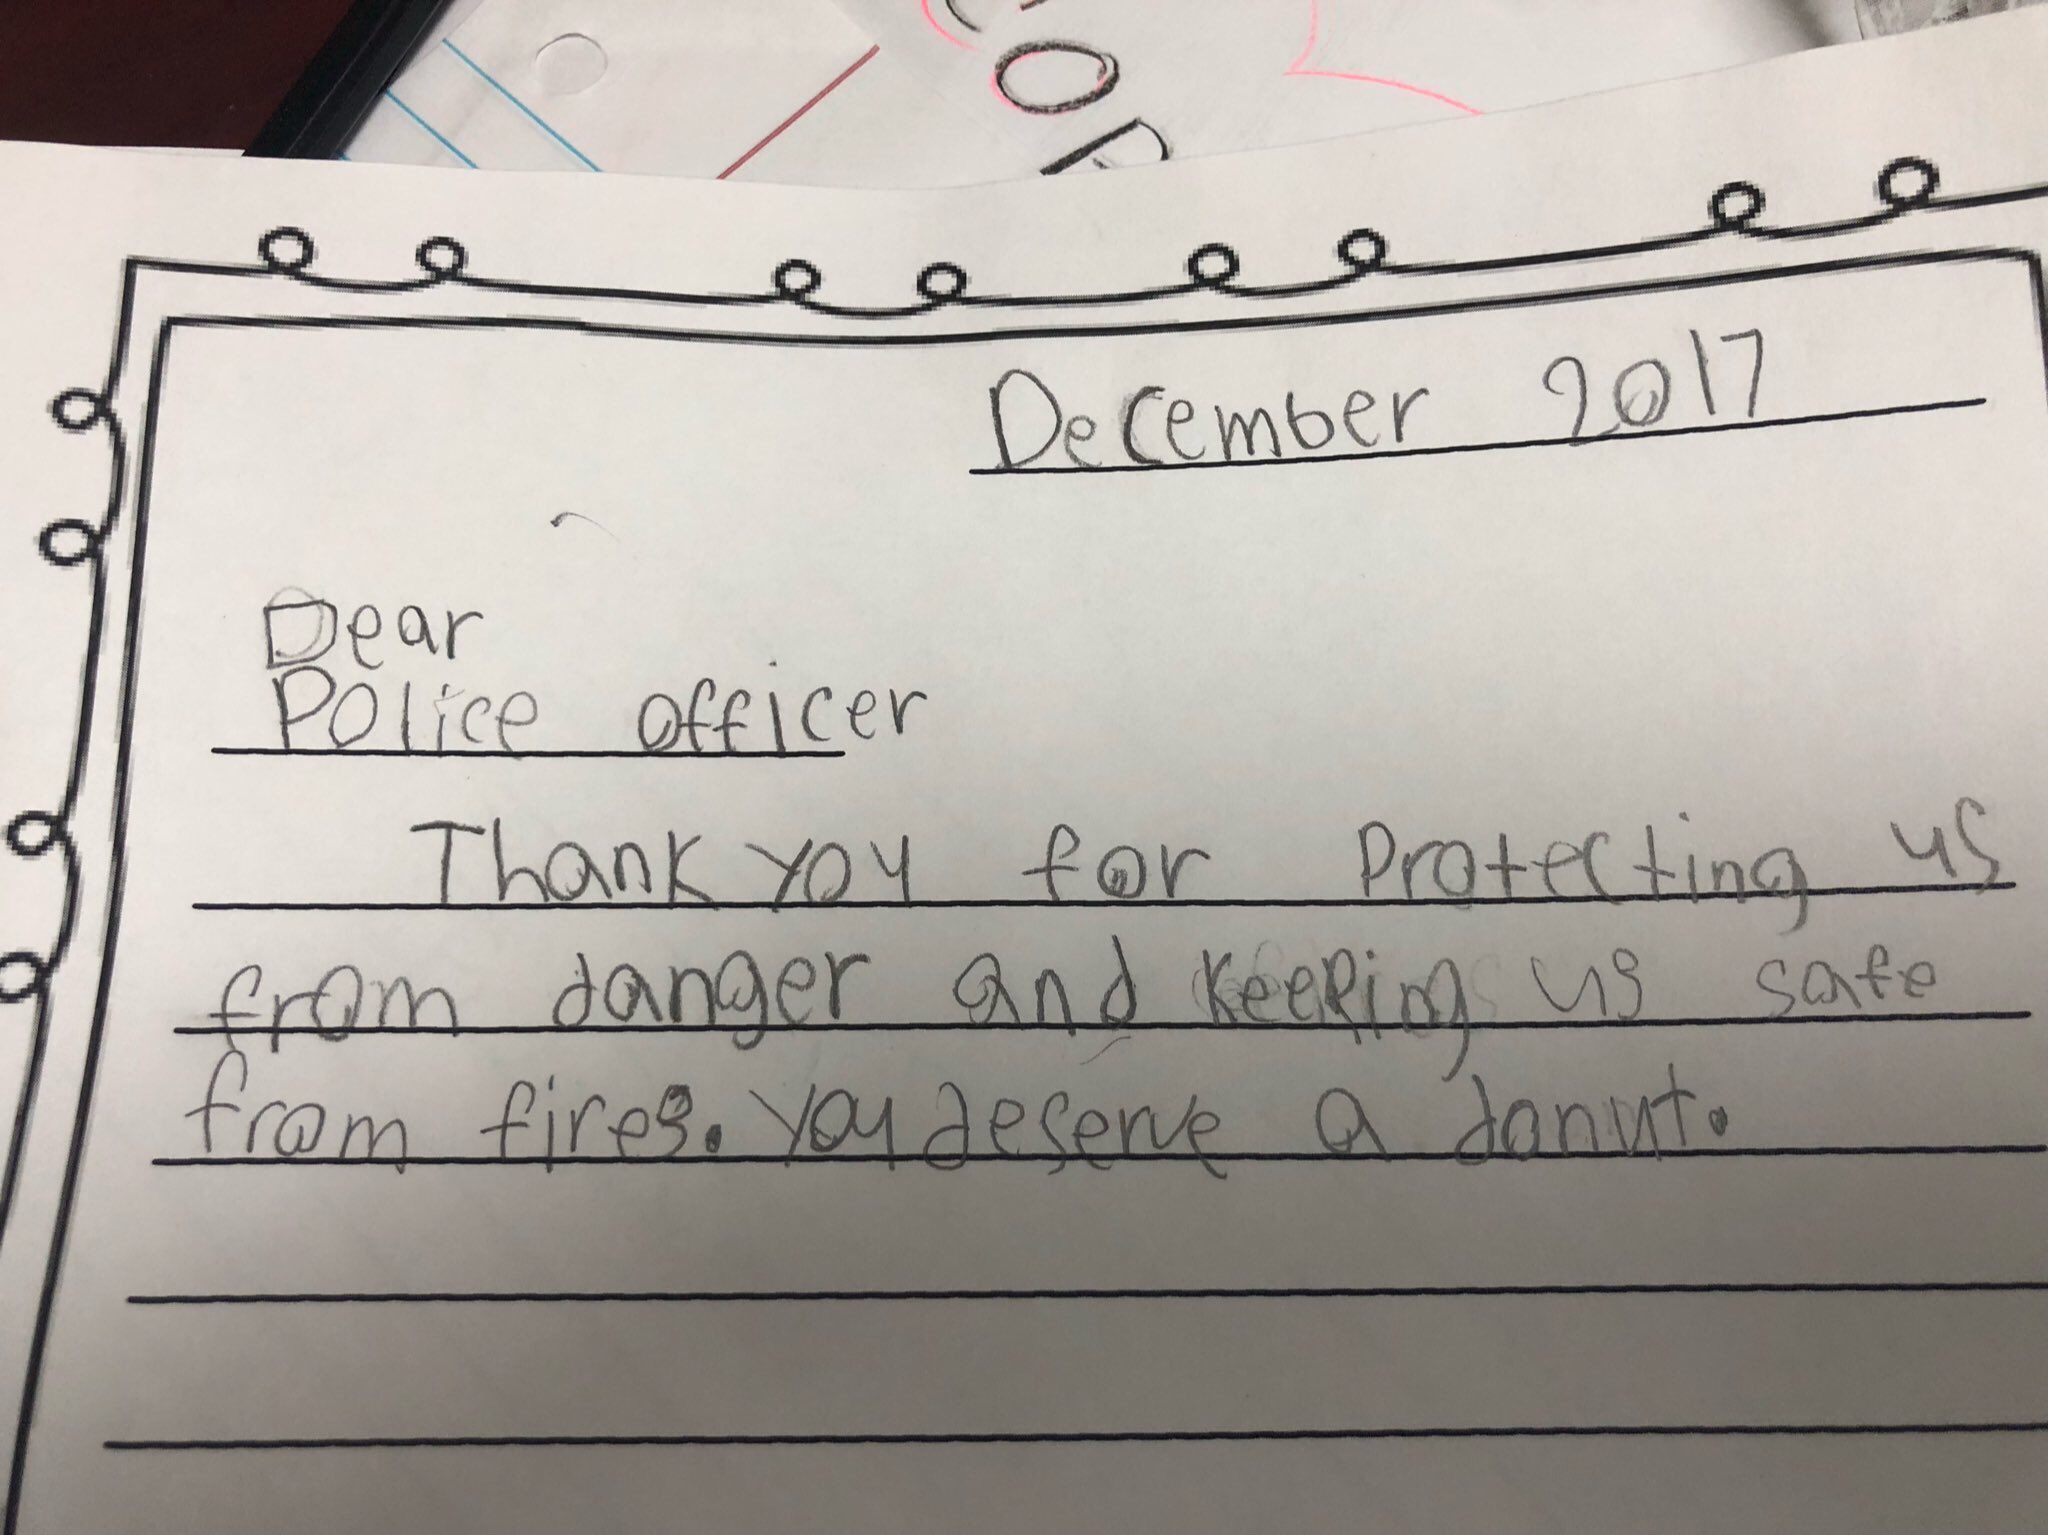 December 2017
Dear
Police officer
Thank you for Protecting us
from danger and keeping us safe
from fires. You deserve a donut.